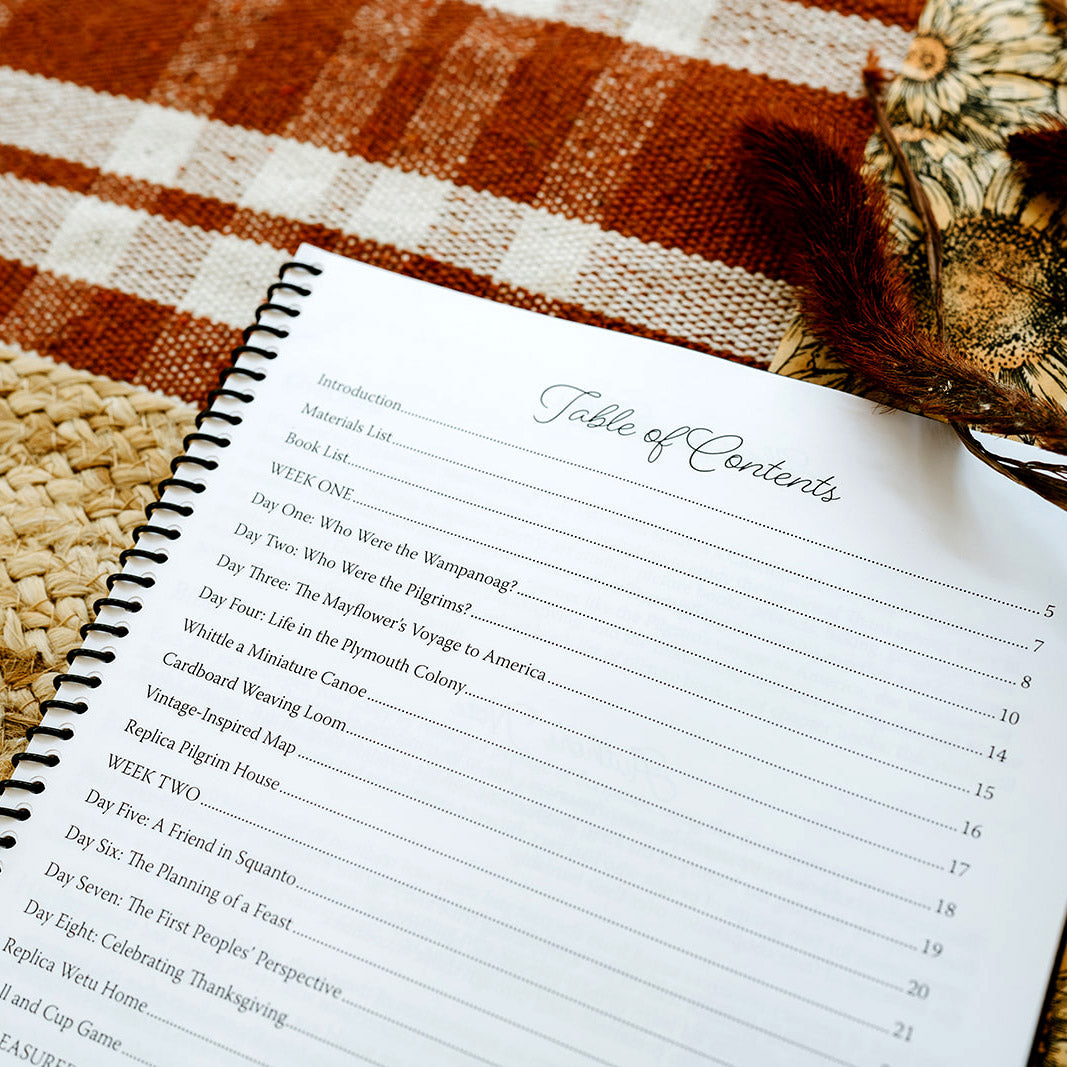 Table of Contents
Introduction....................5
Materials List....................7
Book List....................8
WEEK ONE....................10
Day One: Who Were the Wampanoag?....................14
Day Two: Who Were the Pilgrims?....................15
Day Three: The Mayflower's Voyage to America....................16
Day Four: Life in the Plymouth Colony....................17
Whittle a Miniature Canoe....................18
Cardboard Weaving Loom....................19
Vintage-Inspired Map....................20
Replica Pilgrim House....................21
WEEK TWO....................
Day Five: A Friend in Squanto....................
Day Six: The Planning of a Feast....................
Day Seven: The First Peoples' Perspective....................
Day Eight: Celebrating Thanksgiving....................
Replica Wetu Home....................
and Cup Game....................